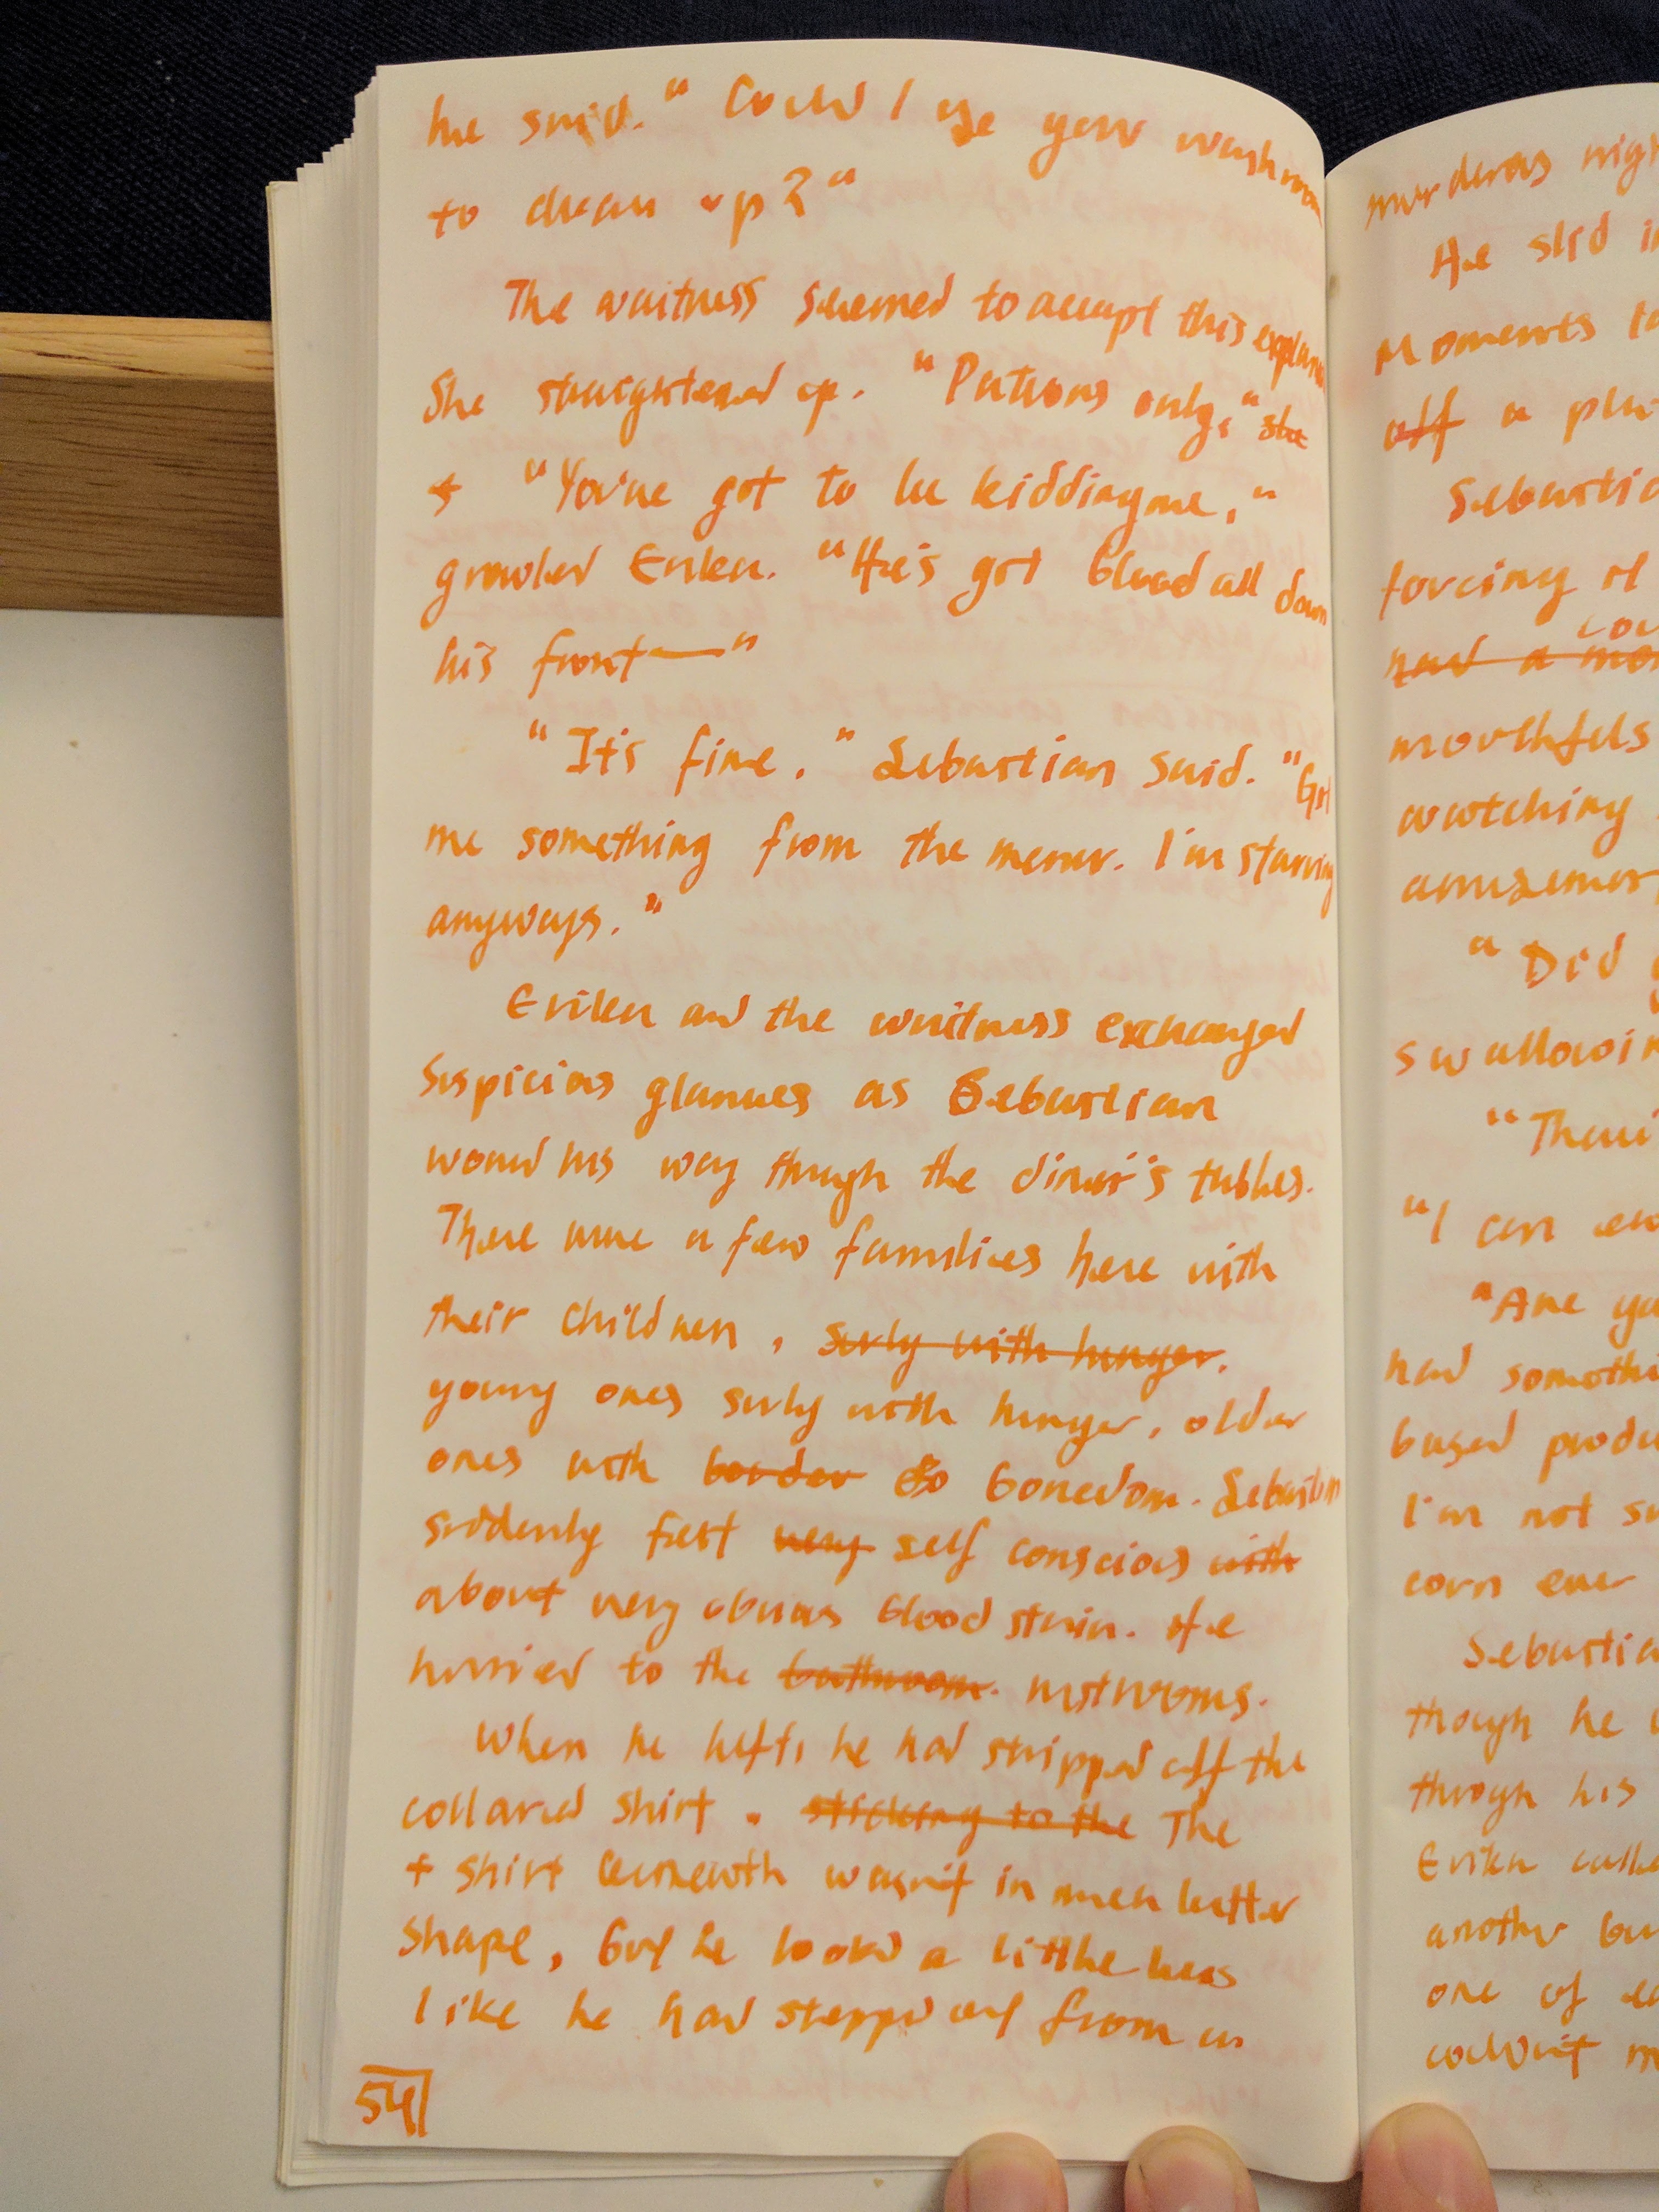 he said. "Could I use your washroom
to clean up?"
The waitress seemed to accept this
She straightened up. "Patrons only," she
"You've got to be kidding me,"
growled Eriken. "He's got blood all down
his front—"
"It's fine." Sebastian said. "Get
me something from the menu. I'm starving
anyways."
Eriken and the waitress exchanged
suspicious glances as Sebastian
wound his way though the diner's tables.
There were a few families here with
their children, surly with hunger.
young ones surly with hunger, older
ones with boredom. Sebastian
suddenly felt very self conscious with
about very obvious blood stain. He
hurried to the bathroom. restrooms.
When he left, he had stripped off the
collared shirt. sticking to the The
t shirt beneath wasn't in much better
shape, but he looked a little less
like he had stepped out from a
54
murderous
He slid
Moments
off a
Sebastian
forcing it
had a
mouthfuls
watching
"Did
"I can
"Are
had
based
I'm not
corn ever
Sebastian
though he
through his
Eriken
another
one of
couldn't